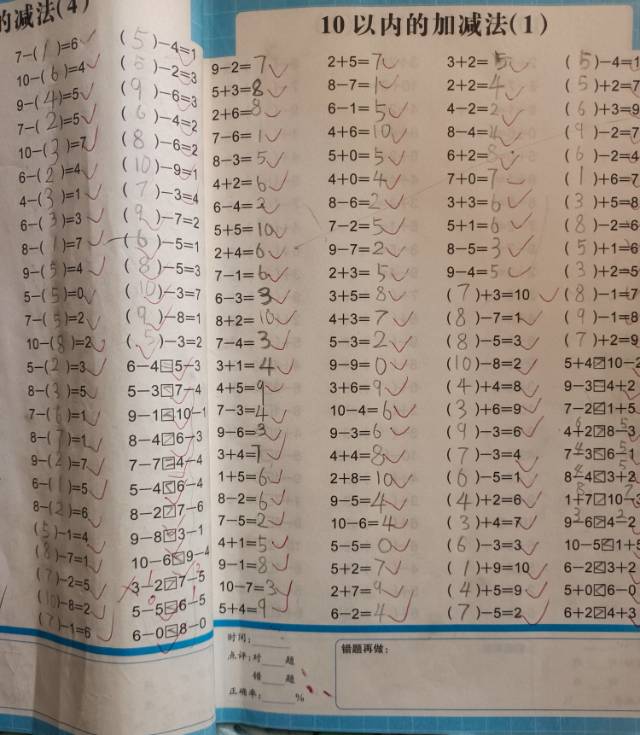 的减法(4)
7-(1)=6 (5)-4=1
10-(6)=4 (5)-2=3
9-(4)=5 (9)-6=3
7-(2)=5 (6)-4=2
10-(3)=7 (8)-6=2
6-(2)=4 (10)-9=1
4-(3)=1 (7)-3=4
6-(3)=3 (9)-7=2
8-(1)=7 (6)-5=1
9-(5)=4 (8)-5=3
5-(5)=0 (10)-3=7
7-(5)=2 (9)-8=1
10-(8)=2 (5)-3=2
5-(2)=3 6-4=5-3
8-(3)=5 5-3<7-4
7-(6)=1 9-1<10-1
8-(7)=1 8-4>6-3
9-(2)=7 7-7=4-4
6-(1)=5 5-4<6-4
8-(2)=6 8-2>7-6
(5)-1=4 9-8<3-1
(8)-7=1 10-6<9-4
(7)-2=5 3-2 7-5
(10)-8=2 5-5<6-5
(7)-1=6 6-0<8-0
10以内的加减法(1)
9-2=7 2+5=7 3+2=5 (5)-4=1
5+3=8 8-7=1 2+2=4 (5)+2=7
2+6=8 6-1=5 4-2=2 (6)+3=9
7-6=1 4+6=10 8-4=4 (9)-2=7
8-3=5 5+0=5 6+2=8 (6)-2=4
4+2=6 4+0=4 7+0=7 (1)+6=7
6-4=2 8-6=2 3+3=6 (3)+5=8
5+5=10 7-2=5 5+1=6 (8)-2=6
2+4=6 9-7=2 8-5=3 (5)+1=6
7-1=6 2+3=5 9-4=5 (3)+2=5
6-3=3 3+5=8 (7)+3=10 (8)-1=7
8+2=10 4+3=7 (8)-7=1 (9)-1=8
7-4=3 5-3=2 (8)-5=3 (7)+2=9
3+1=4 9-9=0 (10)-8=2 5+4>10-2
4+5=9 3+6=9 (4)+4=8 9-3=4+2
7-3=4 10-4=6 (3)+6=9 7-2<1+5
9-6=3 9-3=6 (9)-3=6 4+2>8-3
3+4=7 4+4=8 (7)-3=4 7-3<6-1
1+5=6 2+8=10 (6)-5=1 8-4<3+2
8-2=6 9-5=4 (4)+2=6 1+7>10-3
7-5=2 10-6=4 (3)+4=7 9-6>4-2
4+1=5 5-5=0 (6)-3=3 10-5<1+5
9-1=8 5+2=7 (1)+9=10 6-2<3+2
10-7=3 2+7=9 (4)+5=9 5+0<6-0
5+4=9 6-2=4 (7)-5=2 6+2>4+3
时间:
点评:对 题
错 题
正确率: %
错题再做: